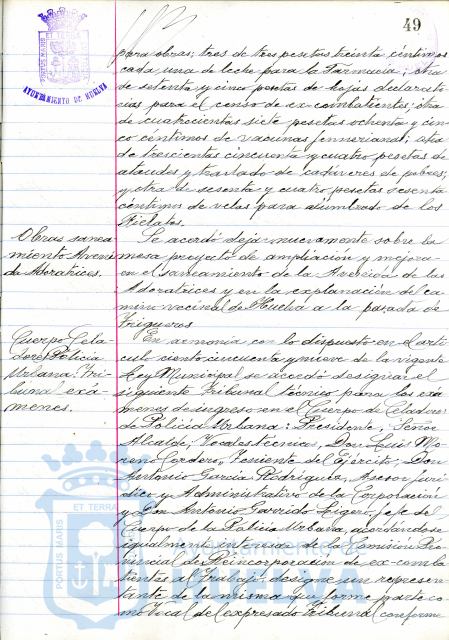 49
PORTUS MARIS ET TERRAE
AYUNTAMIENTO DE HUELVA
para obras; tres de tres pesetas treinta céntimos
cada una de leche para la Farmacia; otra
de setenta y cinco pesetas de hojas declarato
rias para el censo de ex-combatientes; otra
de cuatrocientas siete pesetas ochenta y cin
co céntimos de vacunas jennerianas; otra
de trescientas cincuenta y cuatro pesetas de
ataudes y traslado de cadáveres de pobres;
y otra de sesenta y cuatro pesetas sesenta
céntimos de velas para alumbrado de los
Fielatos.
Obras sanea
miento Aveni
da Adoratrices.
Se acordó dejar nuevamente sobre la
mesa proyecto de ampliación y mejora
en el saneamiento de la Avenida de las
Adoratrices y en la explanación del ca
mino vecinal de Huelva a la parada de
Trigueros
Cuerpo Cela
dores Policía
Urbana. Tri
bunal exá-
menes.
En armonía con lo dispuesto en el artí
culo ciento cincuenta y nueve de la vigente
Ley Municipal se acordó designar el
siguiente Tribunal Técnico para los exá
menes de ingreso en el Cuerpo de Celadores
de Policía Urbana: Presidente, Señor
Alcalde; Vocales técnicos, Don Luis Mo
reno Cordero, Teniente del Ejército, Don
Antonio García Rodríguez, Asesor Jurí
dico y Administrativo de la Corporación
y Don Antonio Garrido Ligero, Jefe del
Cuerpo de la Policía Urbana, acordándose
igualmente interesar de la Comisión Pro
vincial de Reincorporación de ex-comba
tientes al Trabajo designe un represen
tante de la misma que forme parte co
mo Vocal del expresado Tribunal conforme
PORTUS MARIS ET TERRAE
Ayuntamiento de